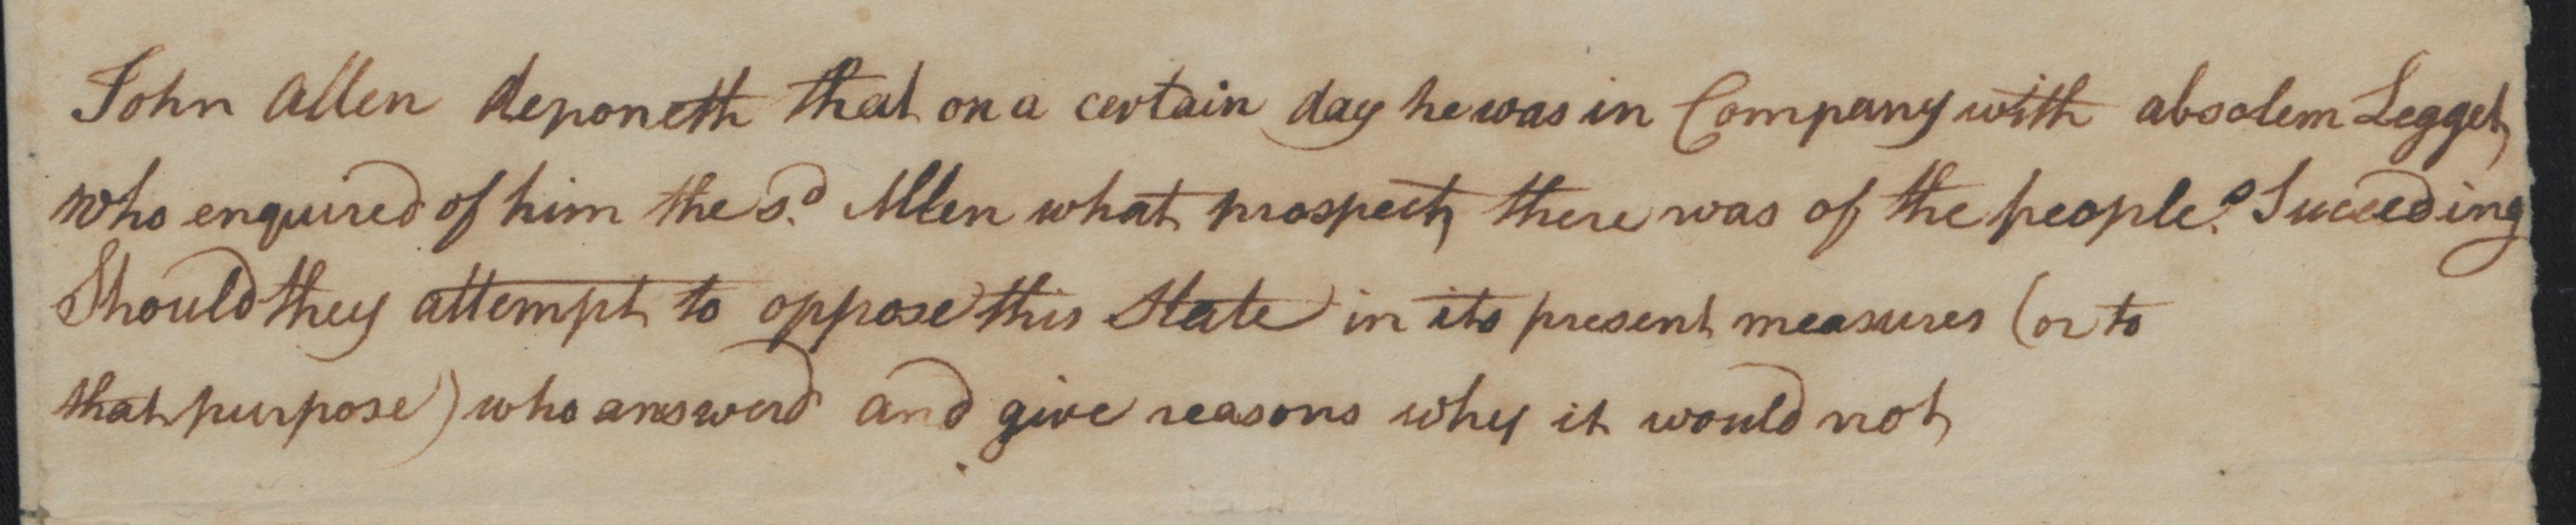 John Allen deponeth that on a certain day he was in Company with absolem Legget,
who enquired of him the sd. Allen what prospect, there was of the people.s Succeeding
Should they attempt to oppose this State in its present measures (or to
that purpose) who answerd and give reasons why it would not